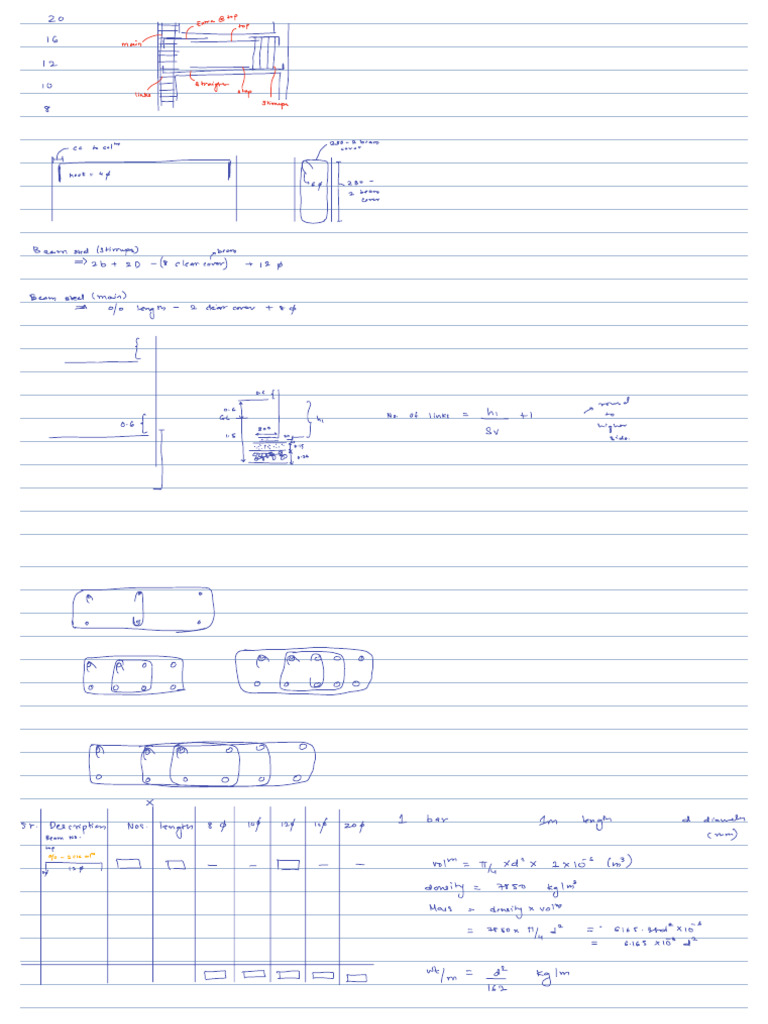 20
16
12
10
8
Extra @ top
top
main
links
straight
stirrups
CC to colᵐ
230 - 2 beam
cover
6ϕ
280 -
2 beam
cover
Beam steel (stirrups)
beam
⇒ 2b + 2D - (8 clear cover) + 12 ϕ
Beam steel (main)
⇒ o/o length - 2 clear cover + 8 ϕ
0.6
0.6
GL
1.5
h₁
0.15
No. of links = h₁ / Sv + 1
round
to
higher
side.
X
Sr. Description Nos. length 8 ϕ 10ϕ 12ϕ 16ϕ 20ϕ
Beam No.
top
12 ϕ
1 bar 1m length d diameter
(mm)
volᵐ = π/4 × d² × 1 × 10⁻⁶ (m³)
density = 7850 kg/m³
Mass = density × volᵐ
= 7850 × π/4 d²
= 6.165 × 10⁻³ d²
wt/m = d²/162 kg/m